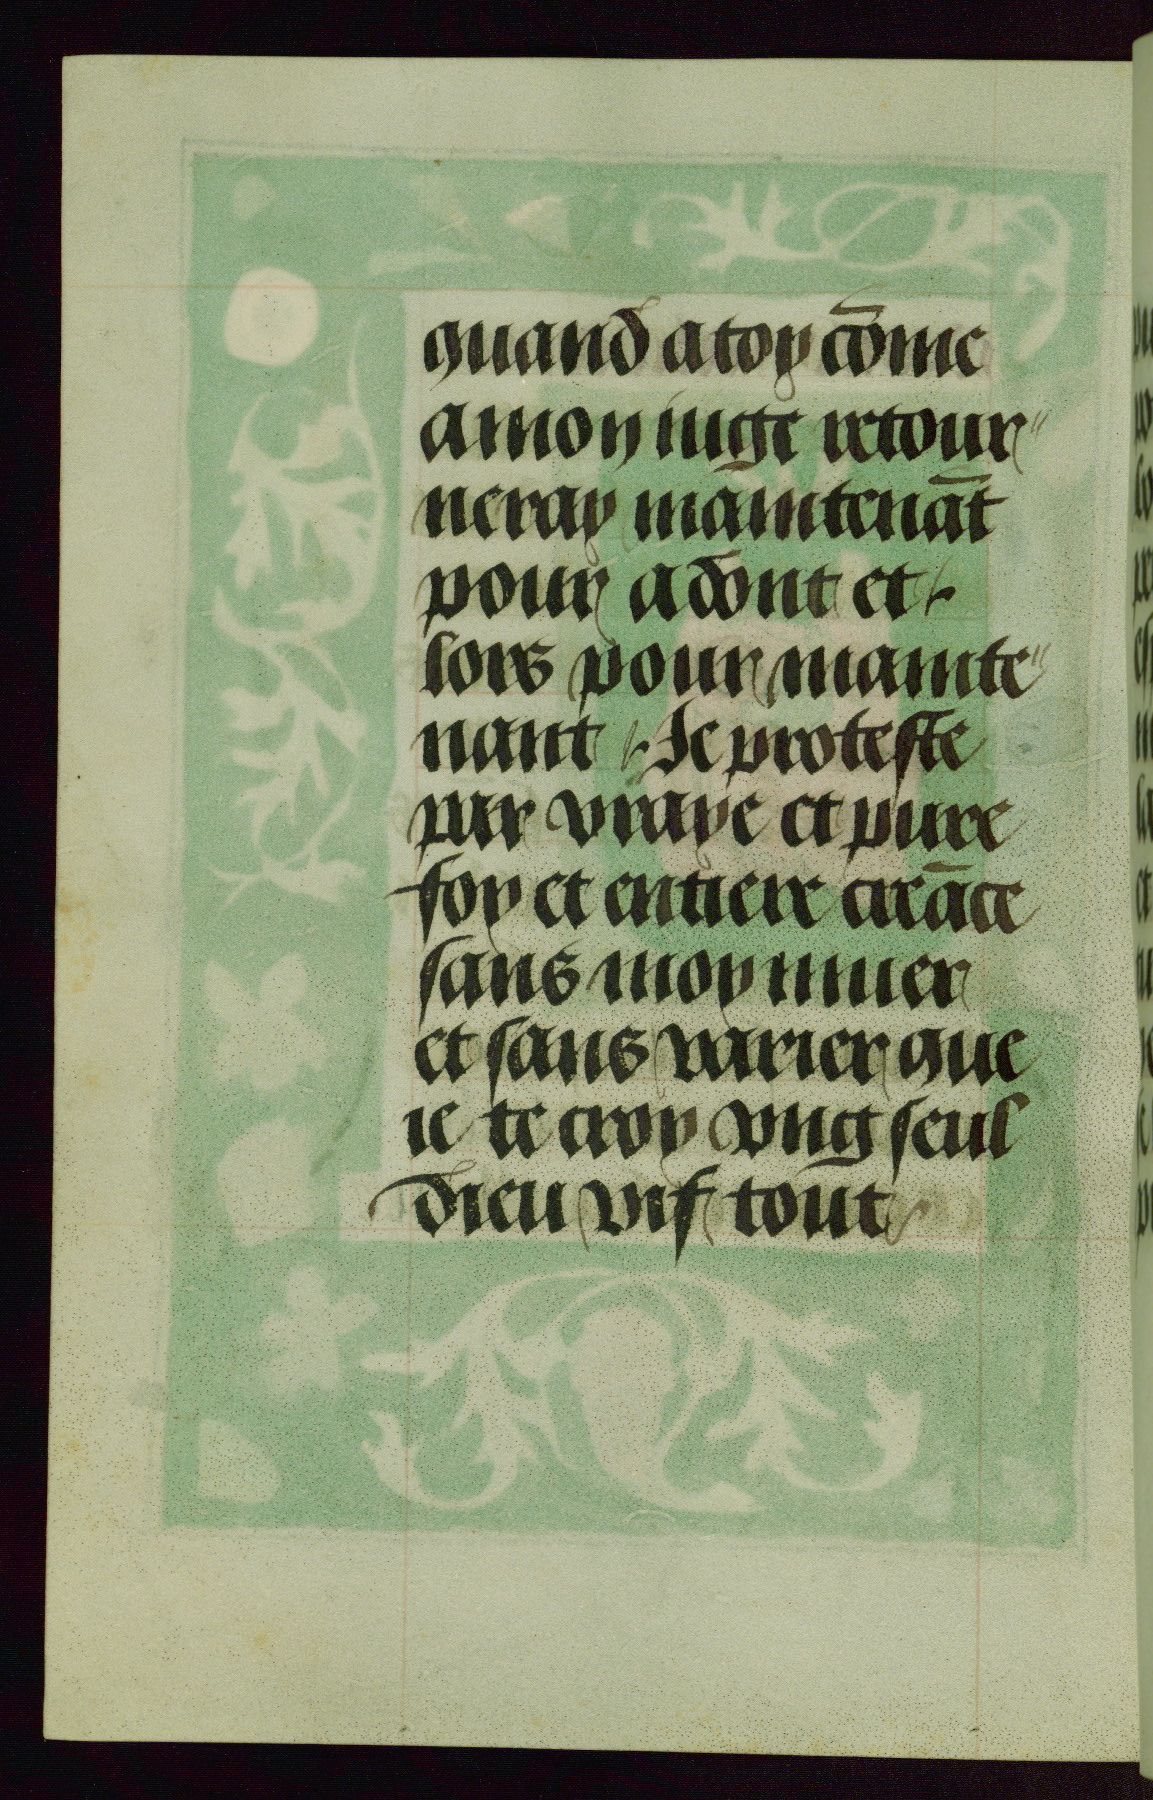 quand a toy cōme
a mon iuge retour"
neray māintenāt
pour adont et
lors pour mainte"
nant. Je proteste
par vraye et pure
foy et entiere creāce
sans moy muer
et sans varier que
ie te croy vng seul
dieu vif tout